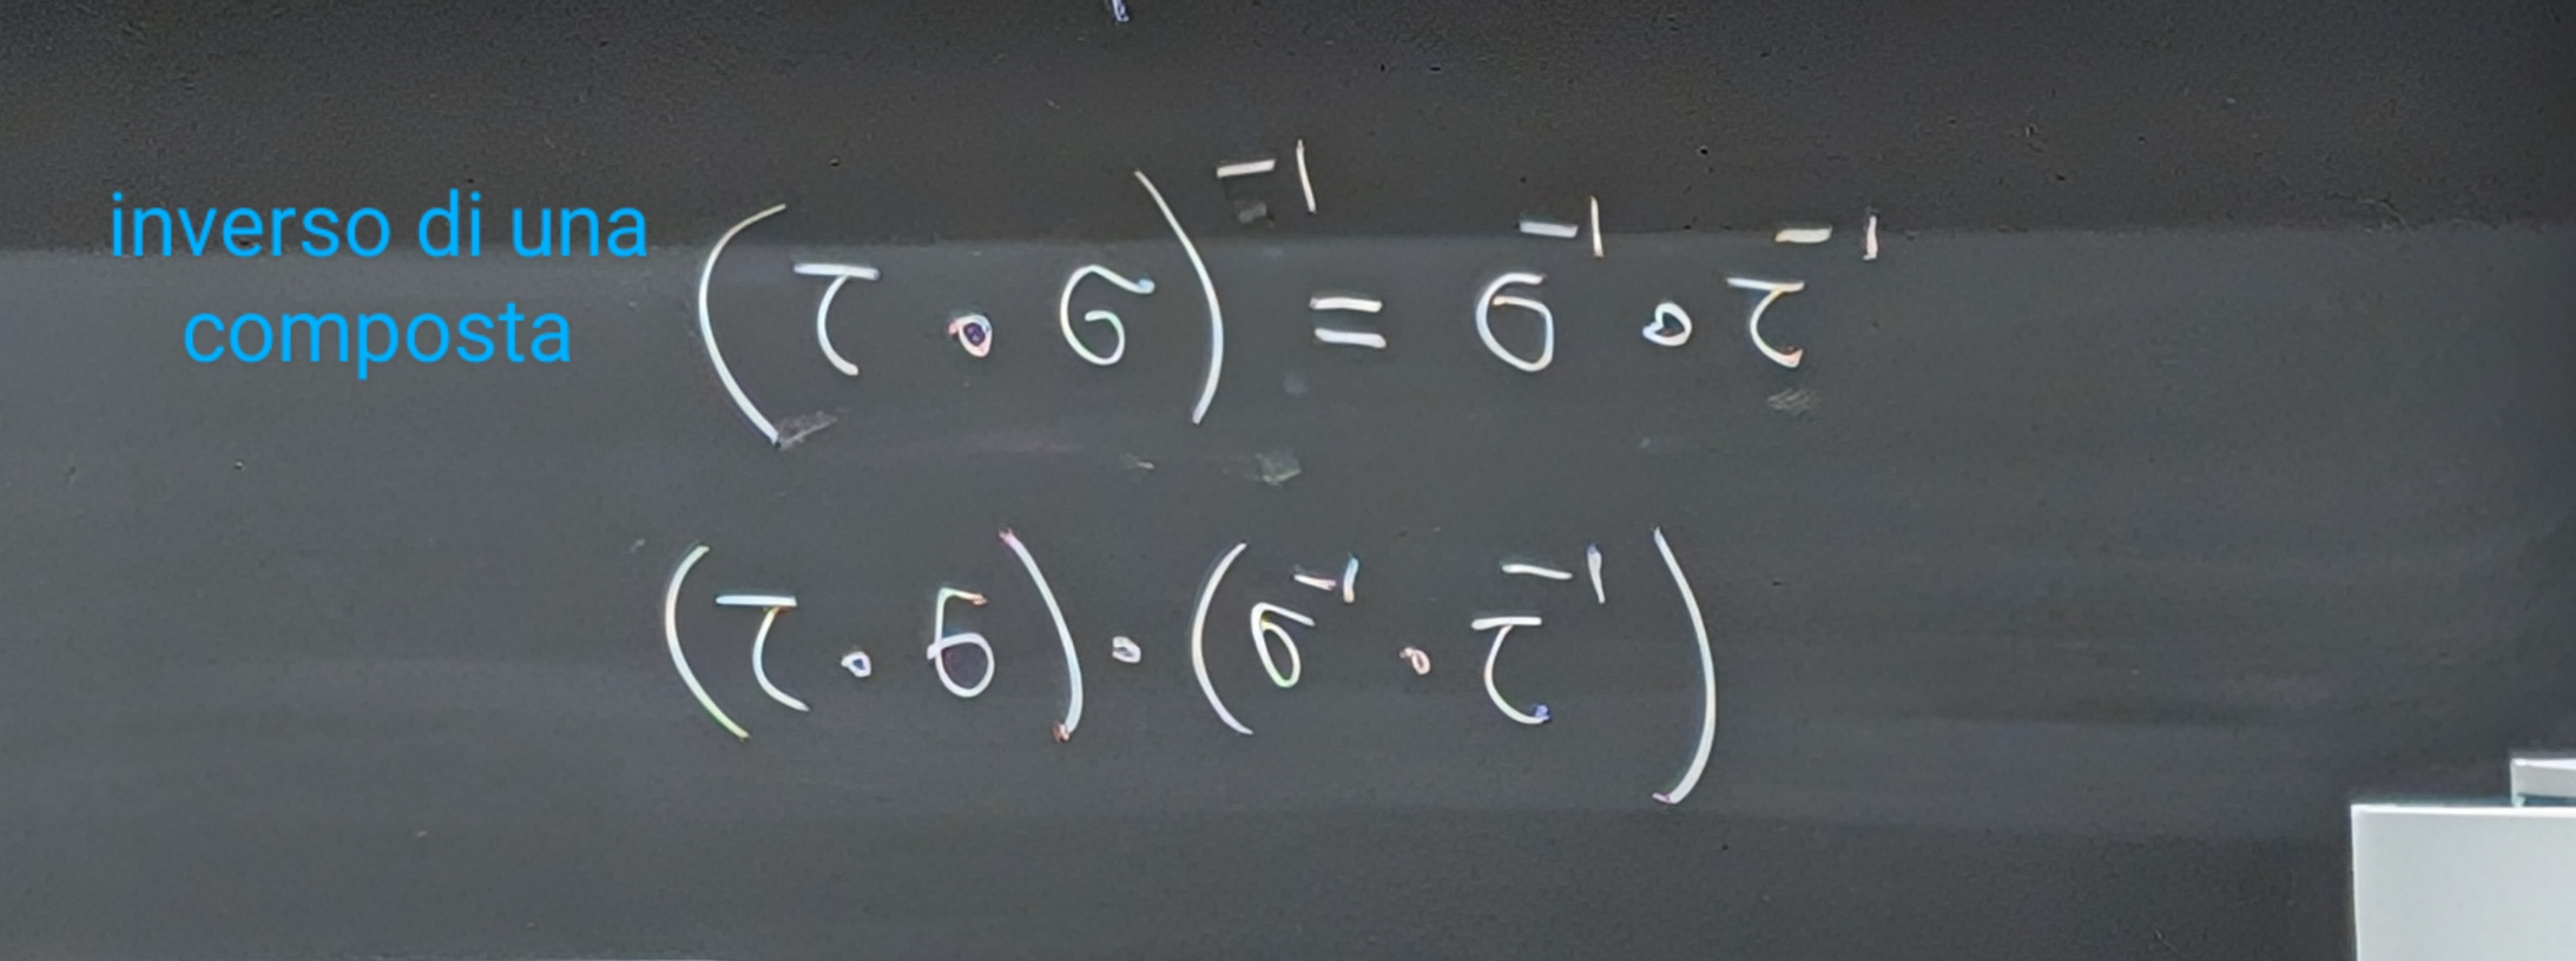 inverso di una
composta
(τ ∘ σ)⁻¹ = σ⁻¹ ∘ τ⁻¹
(τ ∘ σ) ∘ (σ⁻¹ ∘ τ⁻¹)